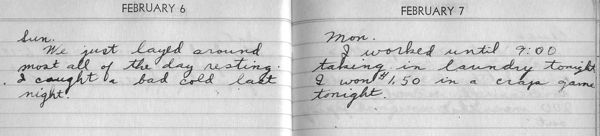 FEBRUARY 6
Sun.
We just layed around
most all of the day resting.
I caught a bad cold last
night.
FEBRUARY 7
Mon.
I worked until 9:00
taking in laundry tonight
I won $1.50 in a craps game
tonight.